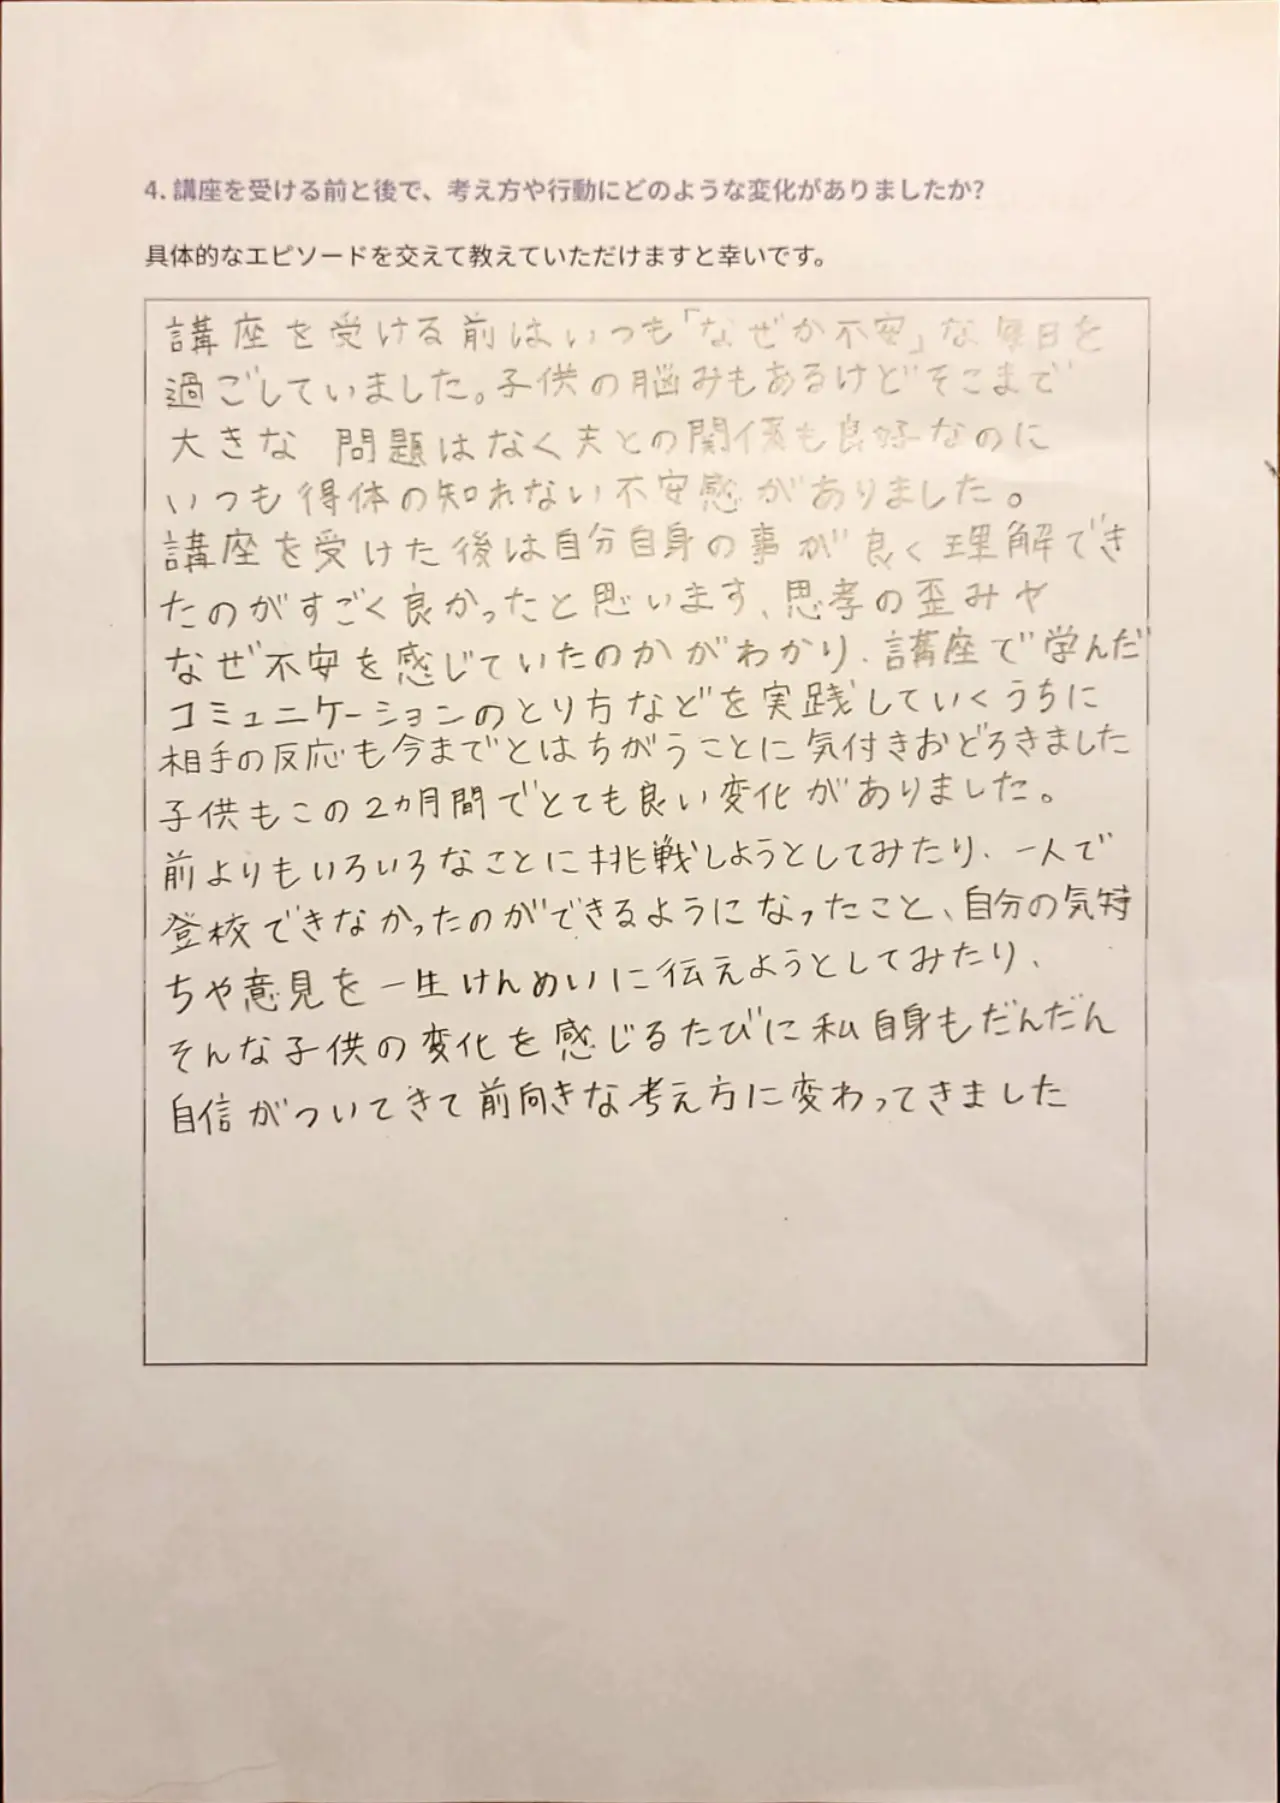 4. 講座を受ける前と後で、考え方や行動にどのような変化がありましたか?
具体的なエピソードを交えて教えていただけますと幸いです。
講座を受ける前はいつも「なぜか不安」な毎日を
過ごしていました。子供の脳みもあるけどそこまで
大きな 問題はなく夫との関係も良好なのに
いつも得体の知れない不安感がありました。
講座を受けた後は自分自身の事が良く理解でき
たのがすごく良かったと思います、思孝の歪みや
なぜ不安を感じていたのかがわかり、講座で学んだ
コミュニケーションのとり方などを実践していくうちに
相手の反応も今までとはちがうことに気付きおどろきました
子供もこの2ヵ月間でとても良い変化がありました。
前よりもいろいろなことに挑戦しようとしてみたり、一人で
登校できなかったのができるようになったこと、自分の気持
ちや意見を一生けんめいに伝えようとしてみたり、
そんな子供の変化を感じるたびに私自身もだんだん
自信がついてきて前向きな考え方に変わってきました